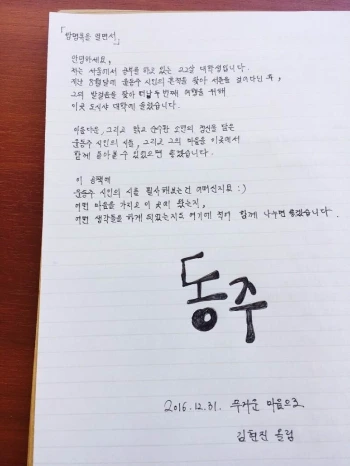 「방명록을 열면서」
안녕하세요,
저는 서울에서 공부를 하고 있는 22살 대학생입니다.
지난 8월달에 윤동주 시인의 흔적을 찾아 서촌을 걸어다닌 후,
그의 발걸음을 찾아 떠난 두번째 여행을 위해
이곳 도시샤 대학에 왔습니다.
아름다운, 그리고 맑고 순수한 소년의 정신을 닮은
윤동주 시인의 시를, 그리고 그의 마음을 이곳에서
함께 돌아볼 수 있었으면 좋겠습니다.
이 공책에
윤동주 시인의 시를 필사해보는건 어떠신지요 :)
어떤 마음을 가지고 이 곳에 왔는지,
어떤 생각들을 하게 되었는지도 여기에 적어 함께 나누면 좋겠습니다.
동주
2016.12.31. 무거운 마음으로,
김현진 올림